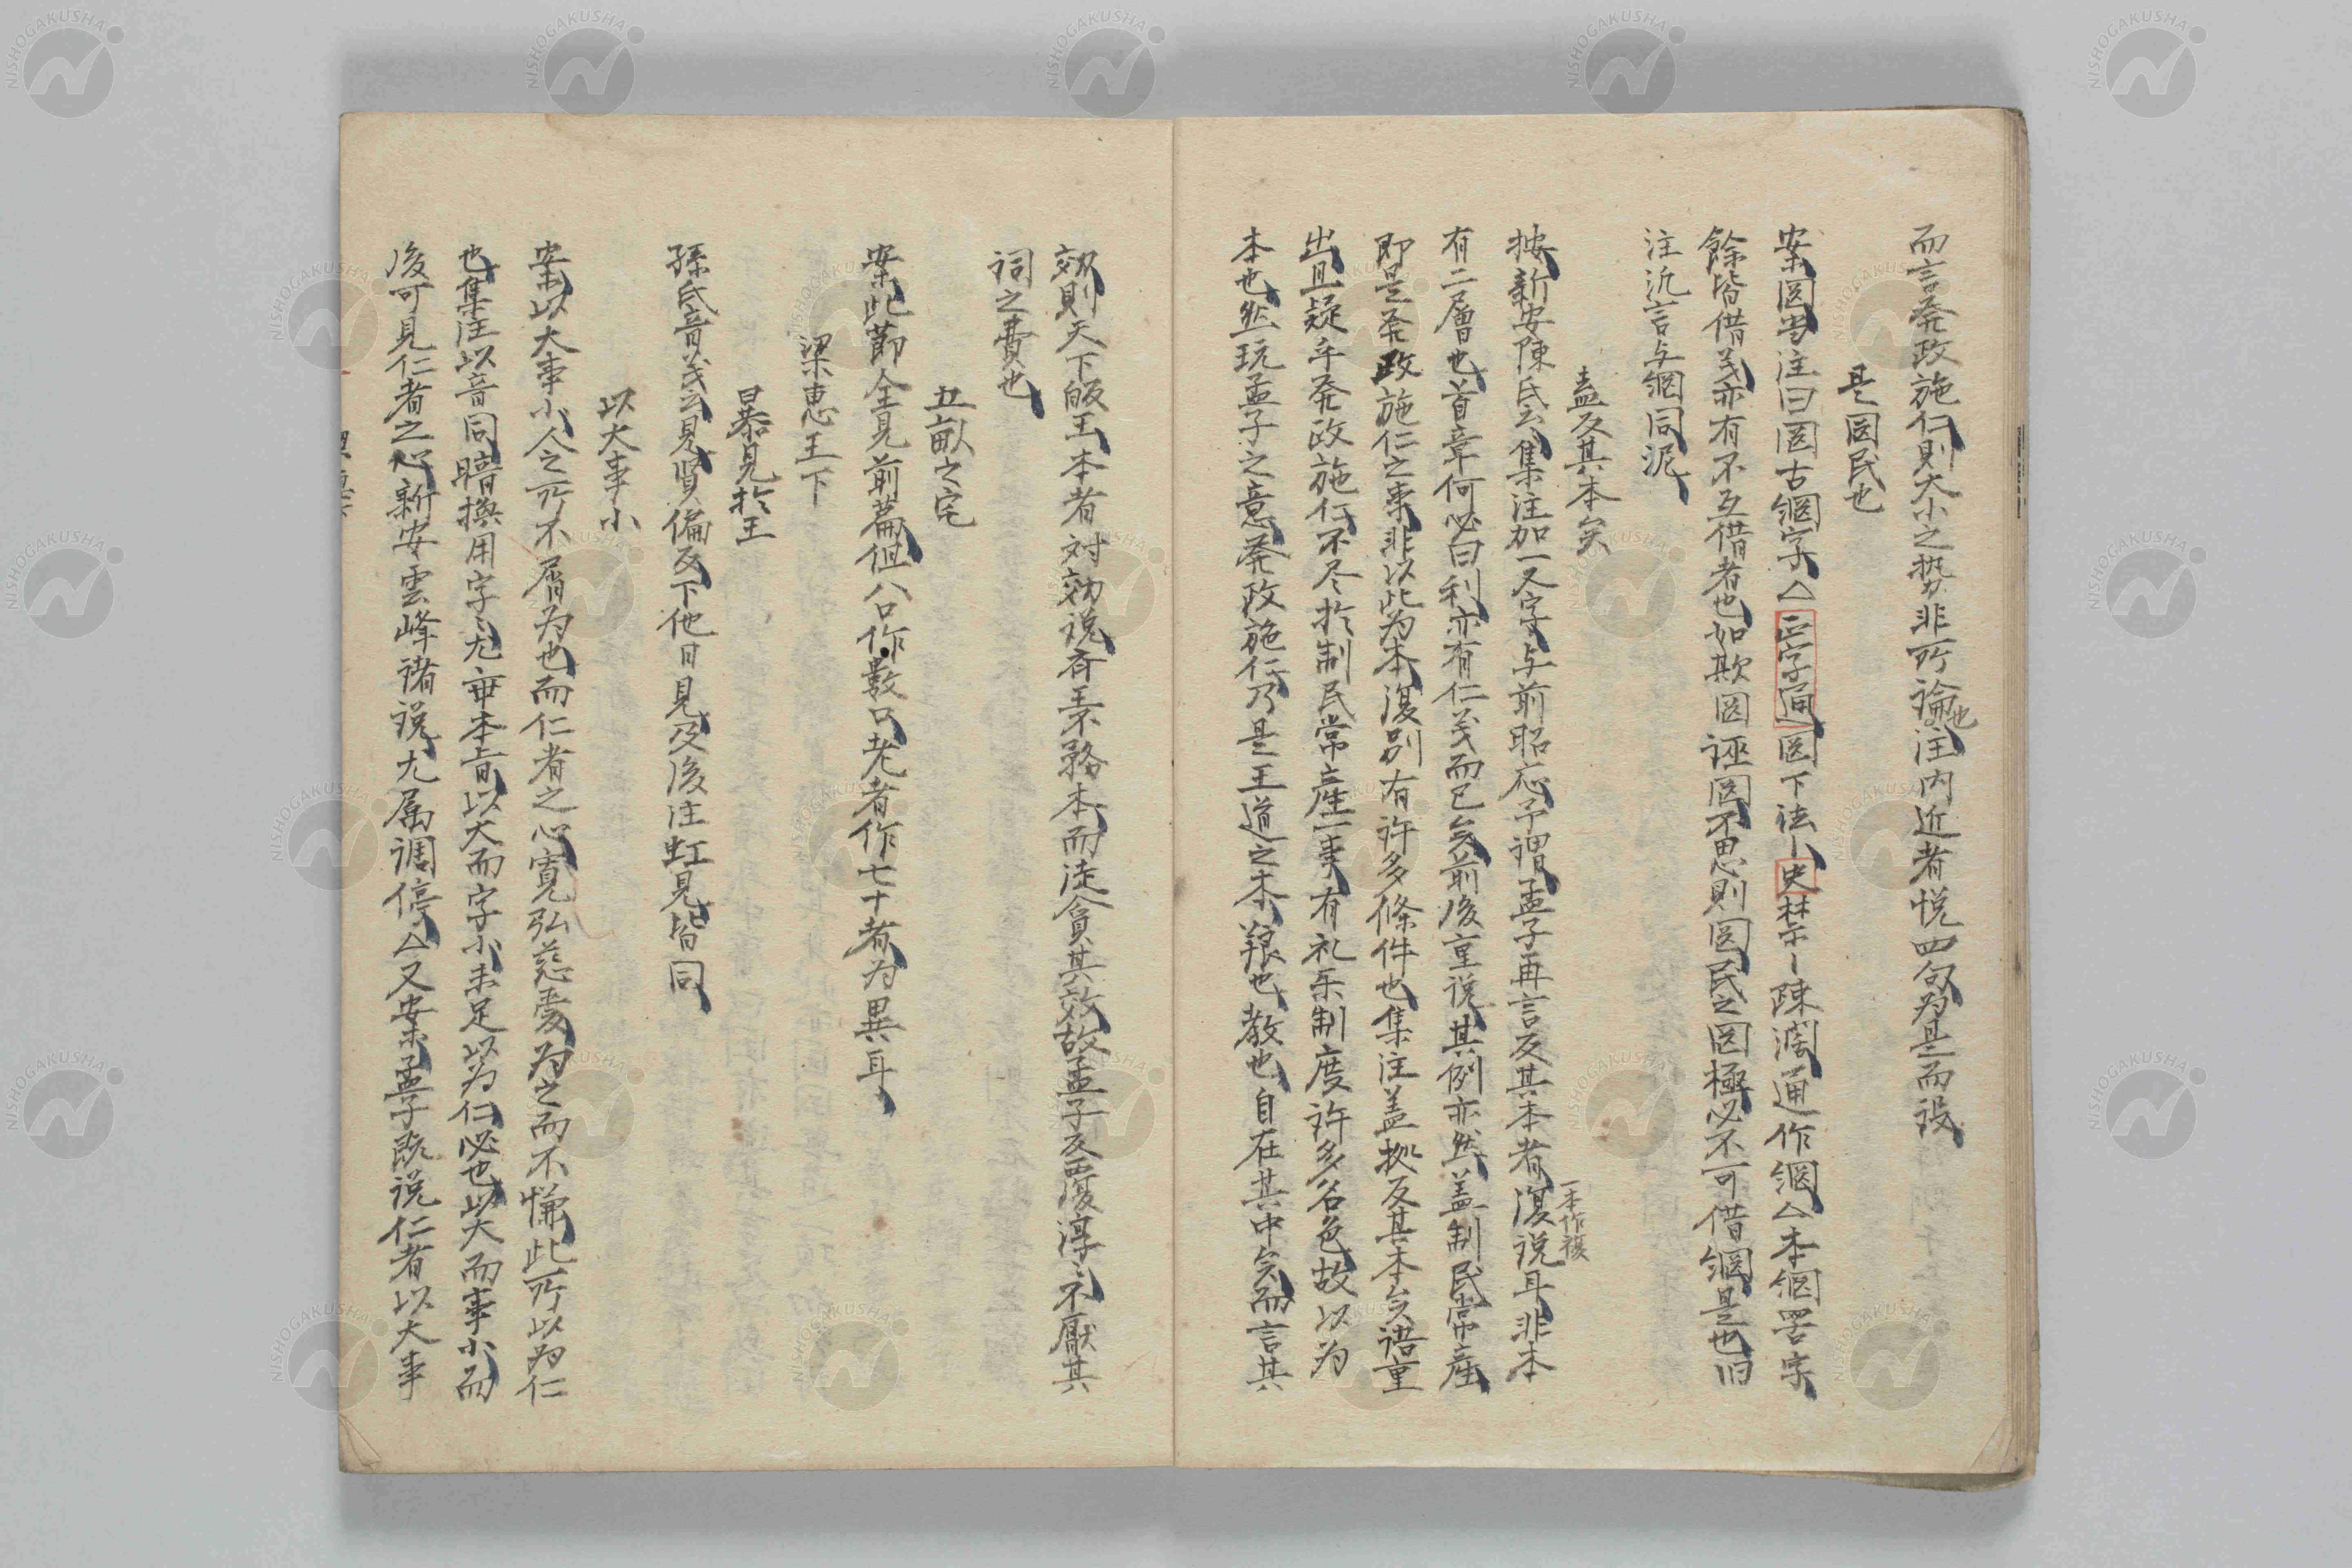 而言発政施仁則大小之勢非所論也注内近者悦四句為是而設
是罔民也
案罔当注曰罔古網字△正字通罔下法〡史禁尓〡疎濶通作網△本網罟字
餘皆借義亦有不互借者也如欺罔誣罔不思則罔民之罔極必不可借網是也旧
注汎言与網同泥
盍反其本矣
按新安陳氏云集注加一又字与前昭応予謂孟子再言反其本者復説耳非本
一本作複
有二層也首章何必曰利亦有仁義而已矣前後重説其例亦然盖制民常産
即是発政施仁之事非以此為本復別有許多條件也集注盖拠反其本矣語重
出且疑乎発政施仁不尽於制民常産一事有礼楽制度許多名色故以為
本也然玩孟子之意発政施仁乃是王道之本根也教也自在其中矣而言其
効則天下皈王本者対効説斉王不務本而徒貪其效故孟子反覆淳〻不厭其
詞之費也
五畝之宅
案此節全見前篇但八口作數口老者作七十者為異耳
梁恵王下
暴見於王
孫氏音義云見賢偏反下他日見及後注虹見皆同
以大事小
案以大事小人之所不屑為也而仁者之心寛弘慈愛為之而不慊此所以為仁
也集注以音同暗換用字〻尤毋本旨以大而字小未足以為仁必也以大而事小而
後可見仁者之心新安雲峰諸説尤属調停△又案孟子既説仁者以大事
NISHOGAKUSHA